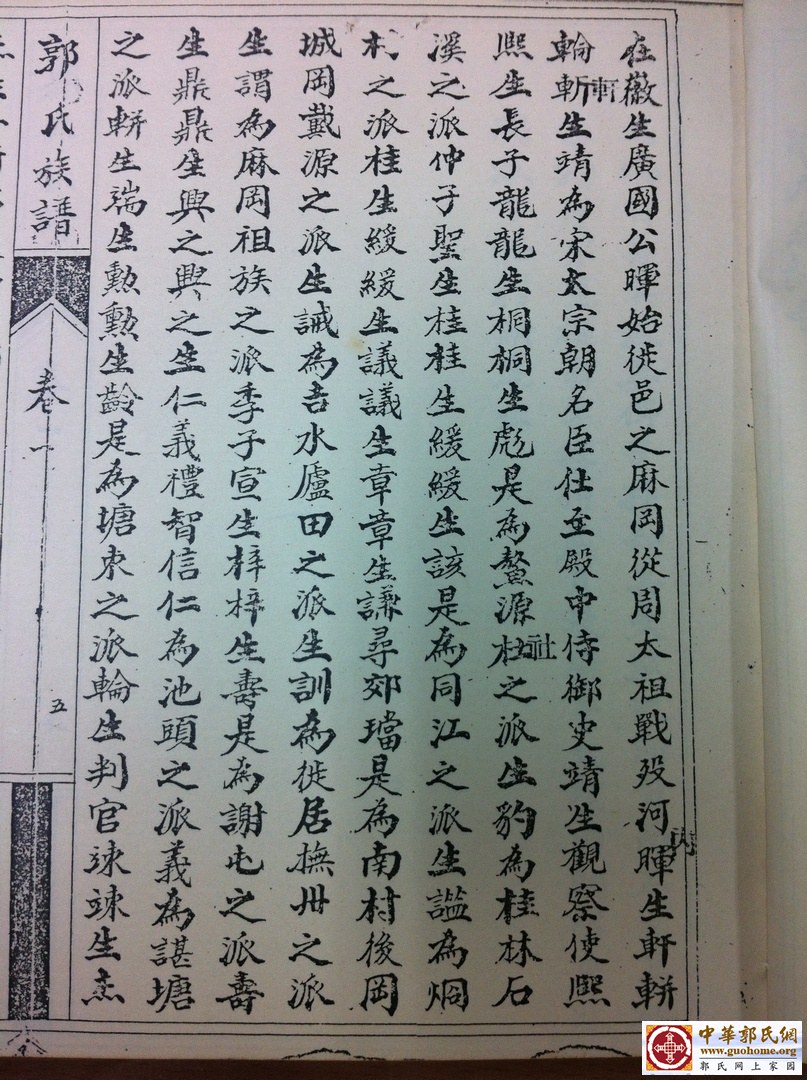 在徽生廣國公暉始徙邑之麻岡從周太祖戰歿河暉生軒輧
輪斬生靖為宋太宗朝名臣仕至殿中侍御史靖生觀察使熙
軒
熙生長子龍龍生桐桐生彪是為鰲源杜之派生豹為桂林石
社
溪之派仲子聖生桂桂生緩緩生該是為同江之派生謐為烱
村之派桂生緩緩生議議生章章生謙尋郊璫是為南村後岡
城岡戴源之派生誡為吉水廬田之派生訓為徙居撫州之派
生謂為麻岡祖族之派季子宣生梓梓生壽是為謝屯之派壽
生鼎鼎生興之興之生仁義禮智信仁為池頭之派義為諶塘
之派輧生端生勳勳生齡是為塘東之派輪生判官竦竦生
郭氏族譜
卷一
五
中華郭氏網
www.guohome.org
郭氏網上家園